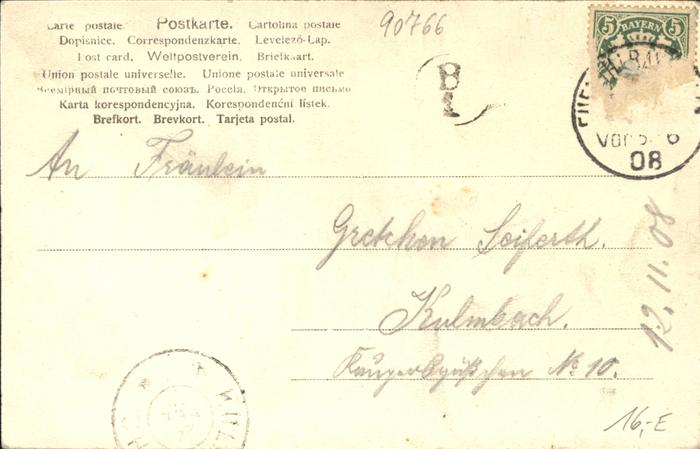 Carte postale. Postkarte. Cartolina postale
Dopisnice. Correspondenzkarte. Levelező-Lap.
Post card. Weltpostverein. Briefkaart.
Union postale universelle. Unione postale universale
Всемірный почтовый союзъ. Россія. Открытое письмо
Karta korespondencyjna. Korespondenční lístek.
Brefkort. Brevkort. Tarjeta postal.
90766
B
L
5 5
BAYERN
Vor 5-6
08
An Fräulein
Gretchen Seiferth.
Kulmbach.
No 10.
12.11.08
16,-E